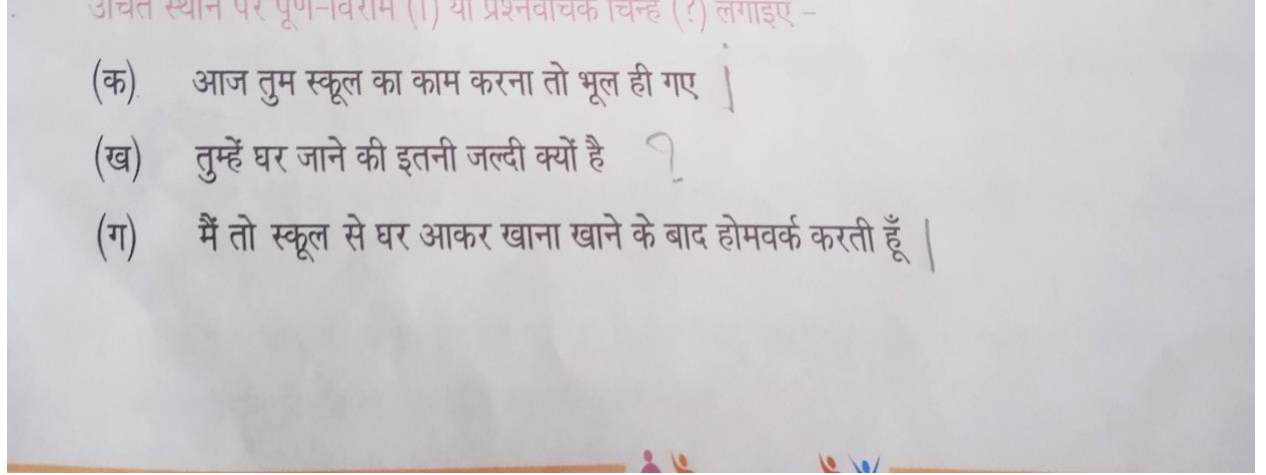 उचित स्थान पर पूर्ण-विराम (।) या प्रश्नवाचक चिन्ह (?) लगाइए -
(क) आज तुम स्कूल का काम करना तो भूल ही गए ।
(ख) तुम्हें घर जाने की इतनी जल्दी क्यों है ?
(ग) मैं तो स्कूल से घर आकर खाना खाने के बाद होमवर्क करती हूँ ।